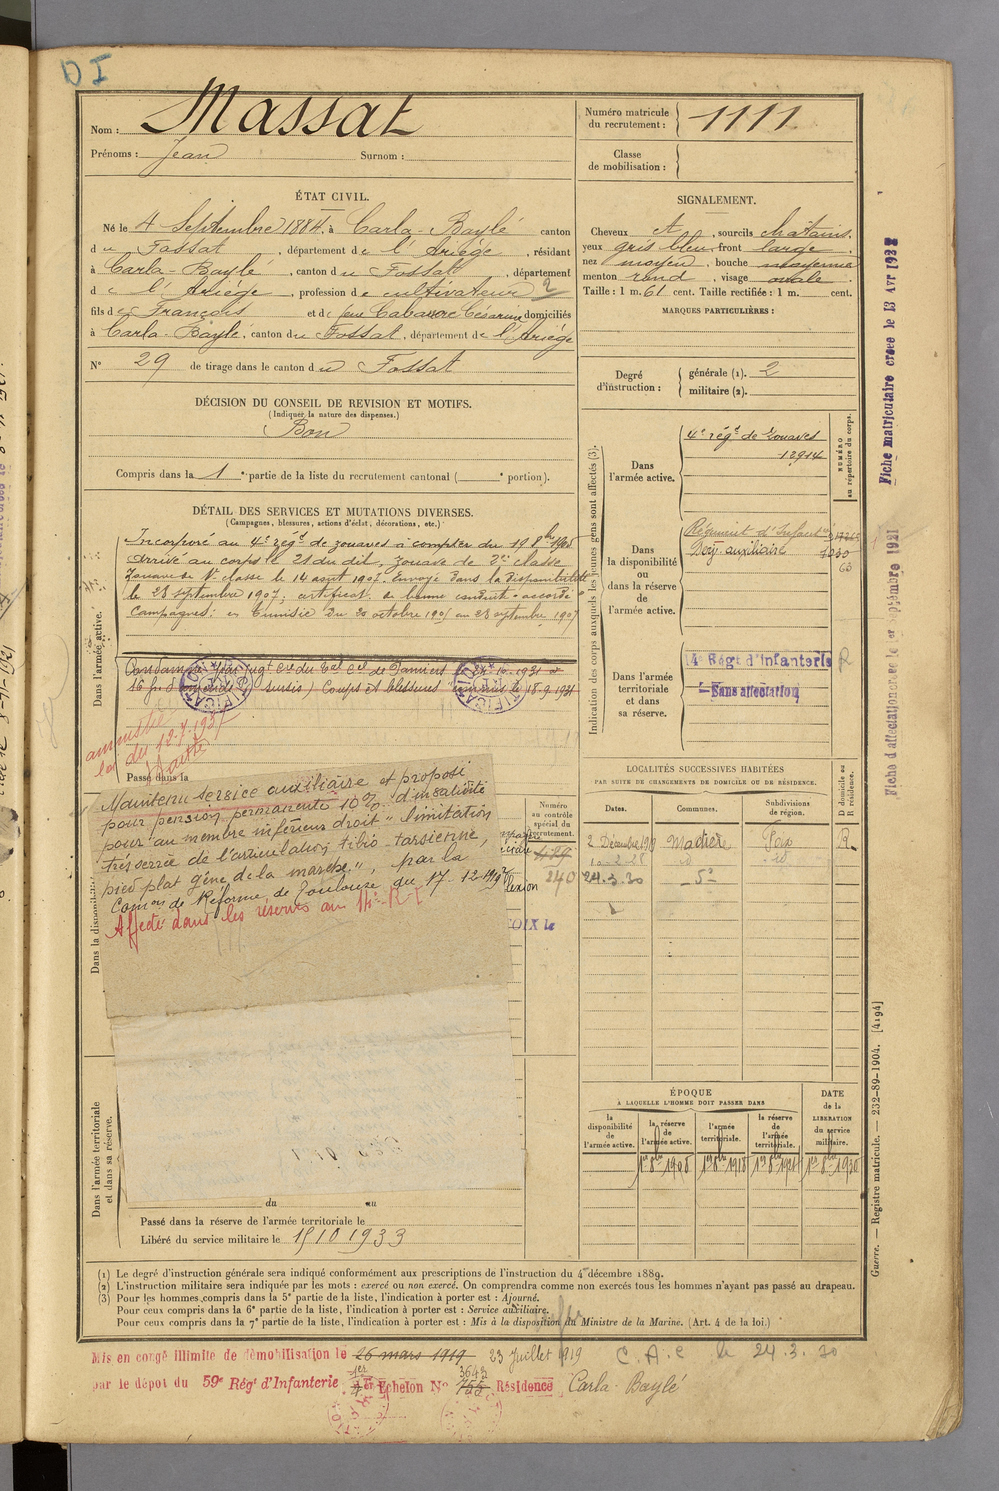 DI
Nom : Massat
Prénoms : Jean Surnom :
ÉTAT CIVIL.
Né le 4 Septembre 1884, à Carla-Baylé canton
du Fossat, département de l'Ariège, résidant
à Carla-Baylé, canton du Fossat, département
de l'Ariège, profession de cultivateur 2
fils de François et de feue Cabanre Césarine domiciliés
à Carla-Baylé, canton du Fossat, département de l'Ariège
N° 29 de tirage dans le canton du Fossat
DÉCISION DU CONSEIL DE REVISION ET MOTIFS.
(Indiquer la nature des dispenses.)
Bon
Compris dans la 1e partie de la liste du recrutement cantonal ( e portion).
DÉTAIL DES SERVICES ET MUTATIONS DIVERSES.
(Campagnes, blessures, actions d'éclat, décorations, etc.)
Dans l'armée active.
Incorporé au 4e régt de zouaves à compter du 19 8bre 1905
arrivé au corps le 21 du dit, zouave de 2e classe
Zouave de 1e classe le 14 août 1907. Envoyé dans la disponibilité
le 28 septembre 1907; certificat de bonne conduite "accordé"
Campagnes: en Tunisie du 20 octobre 1905 au 28 septembre 1907
Condamné par jugt Cel du Bal Cel de Pamiers 24-10-1931 à
16 f. d'amende (sursis) Coups et blessures commis le 18-9-1931
amnistié
loi du 12-7-1937
Passé dans la
Maintenu service auxiliaire et proposé
pour pension permanente 10% d'invalidité
pour au membre inférieur droit "limitation
très serrée de l'articulation tibio-tarsienne,
pied plat gêne de la marche", par la
Comon de Réforme de Toulouse du 17-12-19
Affecté dans les réserves au 14e R I
Dans la disponi
Numéro
au contrôle
spécial du
recrutement.
419
240
OIX le
Dans l'armée territoriale
et dans sa réserve.
du au
Passé dans la réserve de l'armée territoriale le
Libéré du service militaire le 15 10 1933
Numéro matricule
du recrutement : 1111
Classe
de mobilisation :
SIGNALEMENT.
Cheveux et, sourcils châtains.
yeux gris bleu front large
nez moyen, bouche moyenne
menton rond, visage ovale.
Taille : 1 m. 61 cent. Taille rectifiée : 1 m. cent.
MARQUES PARTICULIÈRES :
Degré
d'instruction :
générale (1). 2
militaire (2).
Indication des corps auxquels les jeunes gens sont affectés (3).
NUMÉRO
au répertoire du corps.
Dans
l'armée active.
4e régt de zouaves
12914
Dans
la disponibilité
ou
dans la réserve
de
l'armée active.
Régiment d'Infant
auxiliaire
Dans l'armée
territoriale
et dans
sa réserve.
4e Régt d'infanterie R
Sans affectation
LOCALITÉS SUCCESSIVES HABITÉES
PAR SUITE DE CHANGEMENTS DE DOMICILE OU DE RÉSIDENCE.
D domicile ou
R résidence.
Dates. Communes. Subdivisions
de région.
2 Décembre 19 Madière Foix R.
10-2-28 id id
24.3.30 -5°
ÉPOQUE
À LAQUELLE L'HOMME DOIT PASSER DANS
DATE
de la
LIBÉRATION
du service
militaire.
la
disponibilité
de
l'armée active.
la réserve
de
l'armée active.
l'armée
territoriale.
la réserve
de
l'armée
territoriale.
1er 8bre 1908 1er 8bre 1918 1er 8bre 1924 1er 8bre 1930
(1) Le degré d'instruction générale sera indiqué conformément aux prescriptions de l'instruction du 4 décembre 1889.
(2) L'instruction militaire sera indiquée par les mots : exercé ou non exercé. On comprendra comme non exercés tous les hommes n'ayant pas passé au drapeau.
(3) Pour les hommes compris dans la 5e partie de la liste, l'indication à porter est : Ajourné.
Pour ceux compris dans la 6e partie de la liste, l'indication à porter est : Service auxiliaire.
Pour ceux compris dans la 7e partie de la liste, l'indication à porter est : Mis à la disposition du Ministre de la Marine. (Art. 4 de la loi.)
Mis en congé illimité de démobilisation le 26 mars 1919 23 Juillet 1919 C.A.C le 24.3.30
par le dépôt du 59e Régt d'Infanterie 1er Echelon N° 755 3642 Résidence Carla-Baylé
Fiche matriculaire créée le 13 Avr 1932
Fiche d'affectation créée le 1er Septembre 1921
Guerre. — Registre matricule. — 232-89-1904. [4194]